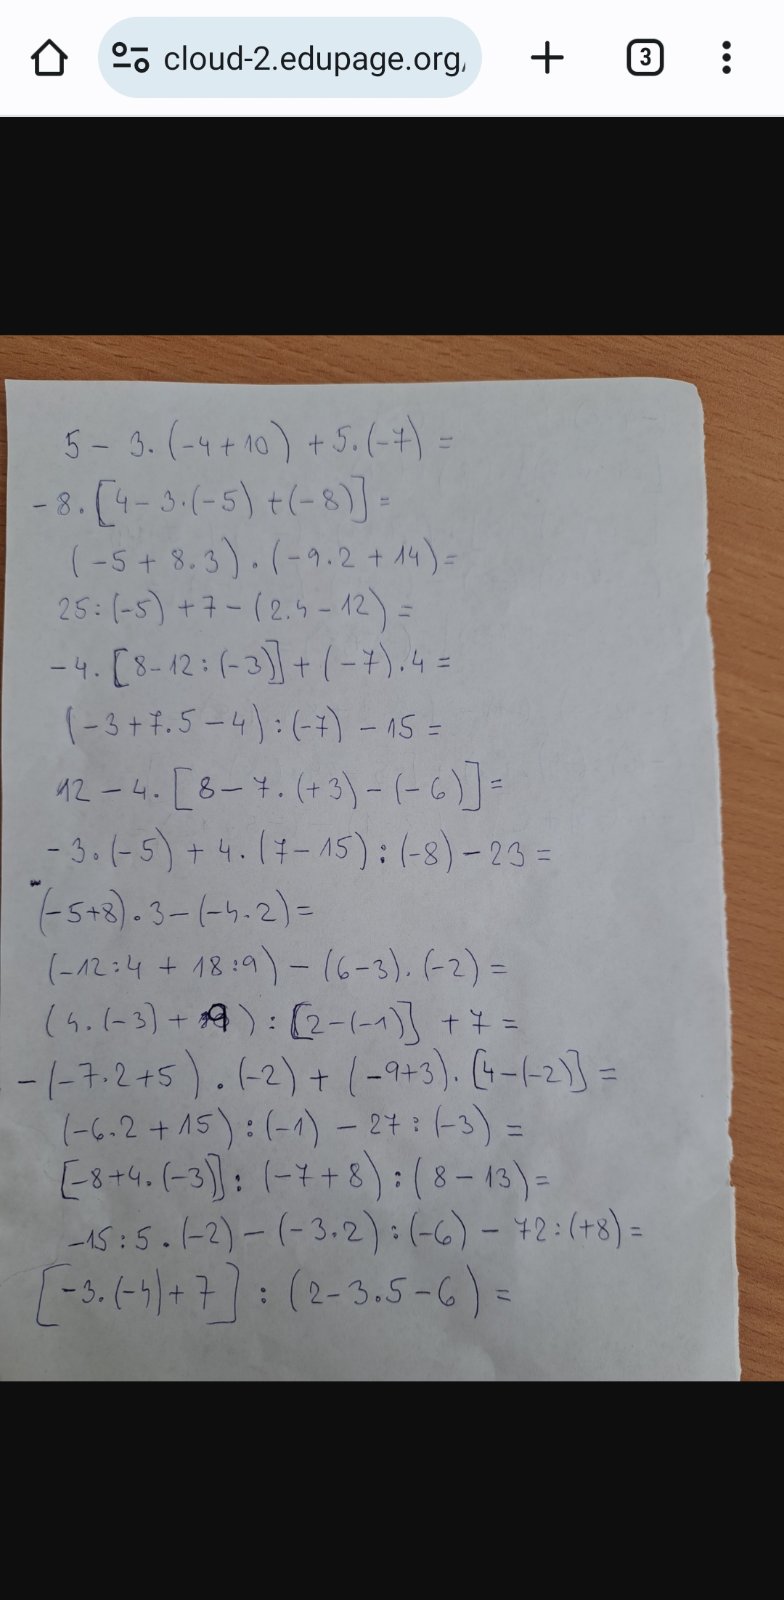 cloud-2.edupage.org/
3
5 - 3.(-4+10) + 5.(-7) =
-8.[4-3.(-5) + (-8)] =
(-5 + 8.3).(-9.2 + 14) =
25:(-5) + 7 - (2.4 - 12) =
-4.[8-12:(-3)] + (-7).4 =
(-3+7.5-4):(-7) - 15 =
12 - 4.[8-7.(+3)-(-6)] =
-3.(-5) + 4.(7-15):(-8) - 23 =
(-5+8).3-(-4.2) =
(-12:4 + 18:9) - (6-3).(-2) =
(4.(-3) + 9) : [2-(-1)] + 7 =
-(-7.2+5).(-2) + (-9+3).[4-(-2)] =
(-6.2 + 15):(-1) - 27:(-3) =
[-8+4.(-3)]:(-7+8):(8-13) =
-15:5.(-2)-(-3.2):(-6) - 72:(+8) =
[-3.(-4)+7] : (2-3.5-6) =